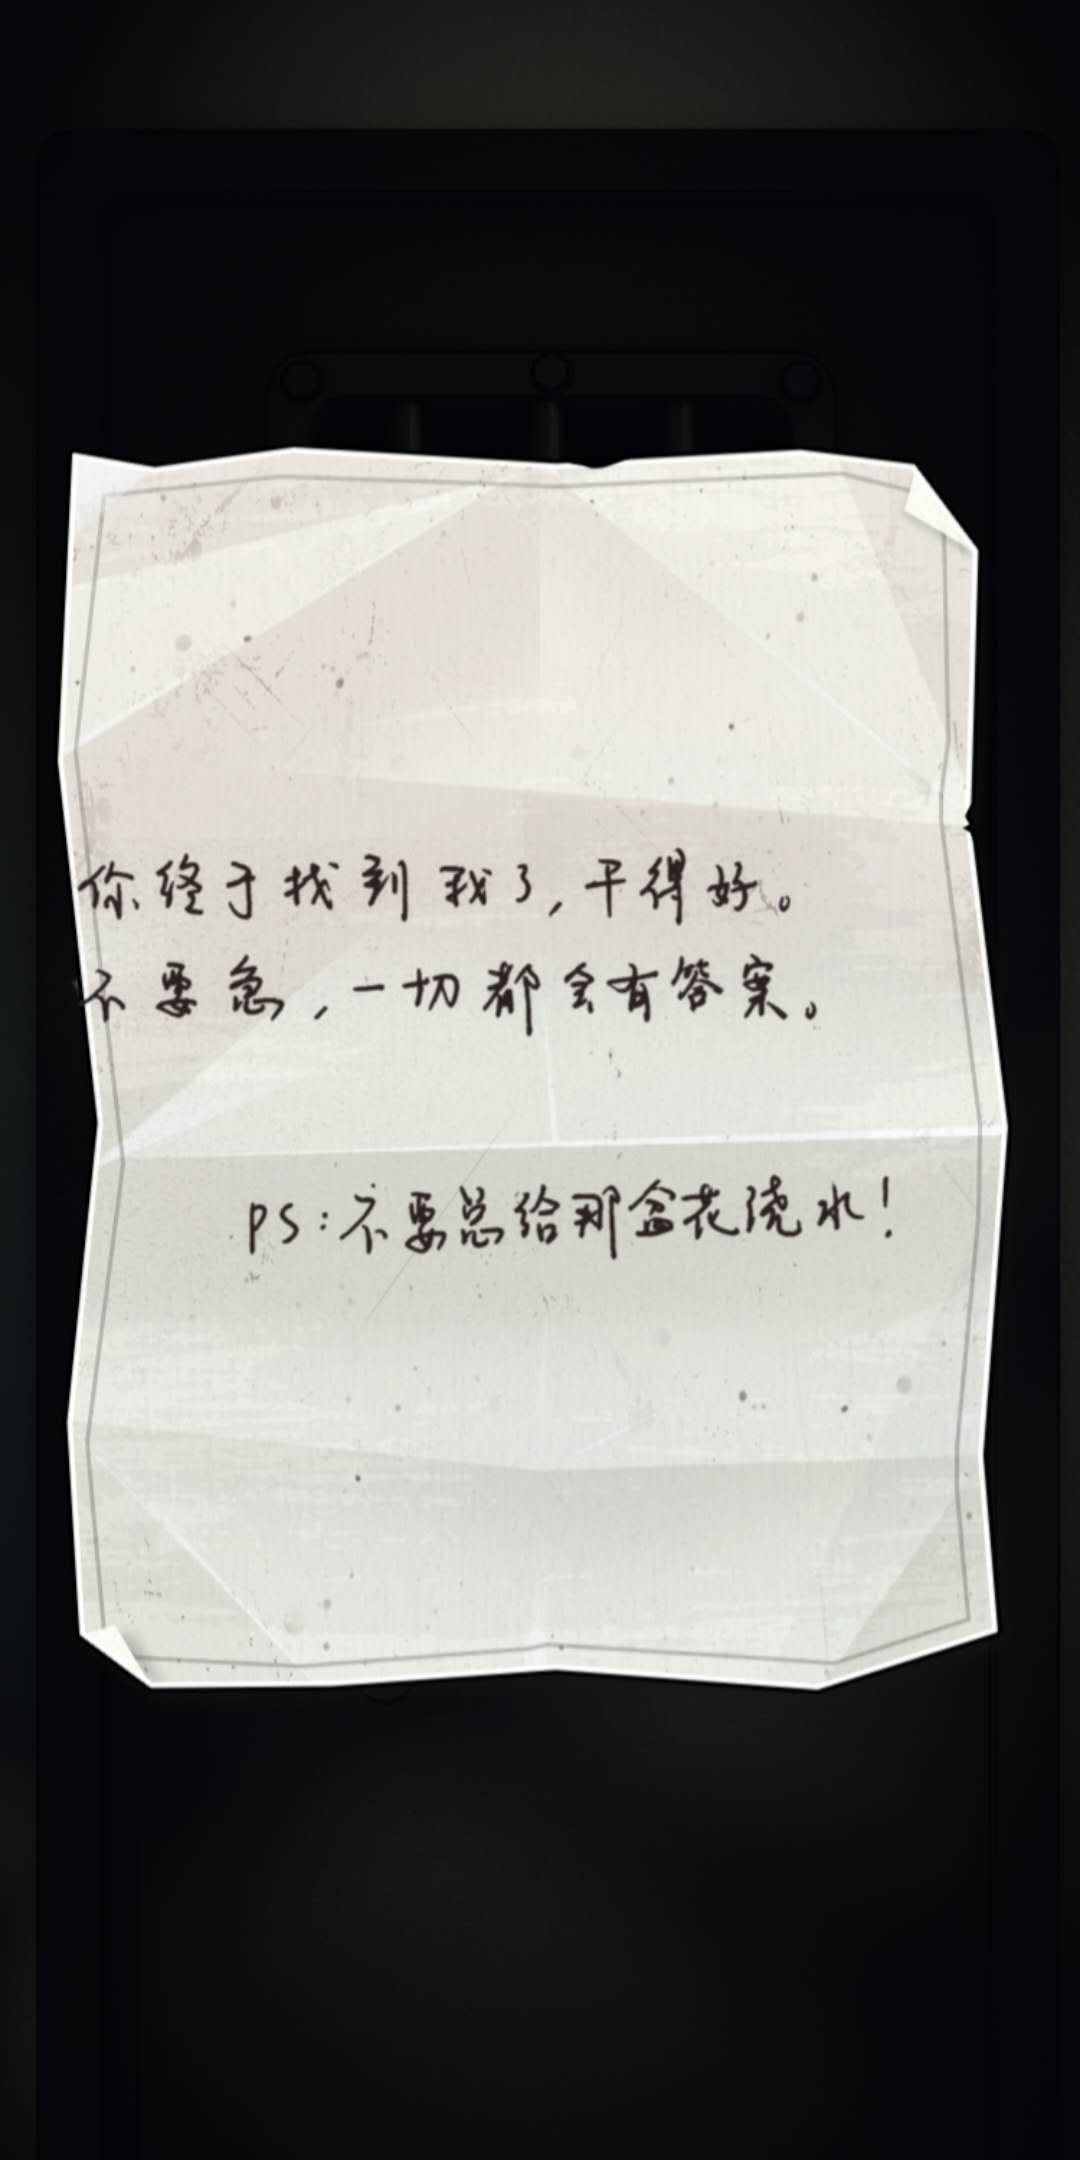 你终于找到我了，干得好。
不要急，一切都会有答案。
PS：不要总给那盆花浇水！